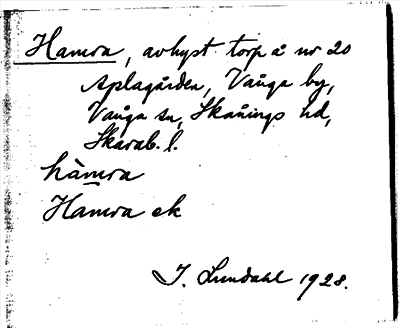 Hamra, avhyst torp å nr 20
Aplagården, Vånga by,
Vånga sn, Skånings hd,
Skarab. l.
hàmra
Hamra ek
I. Lundahl 1928.